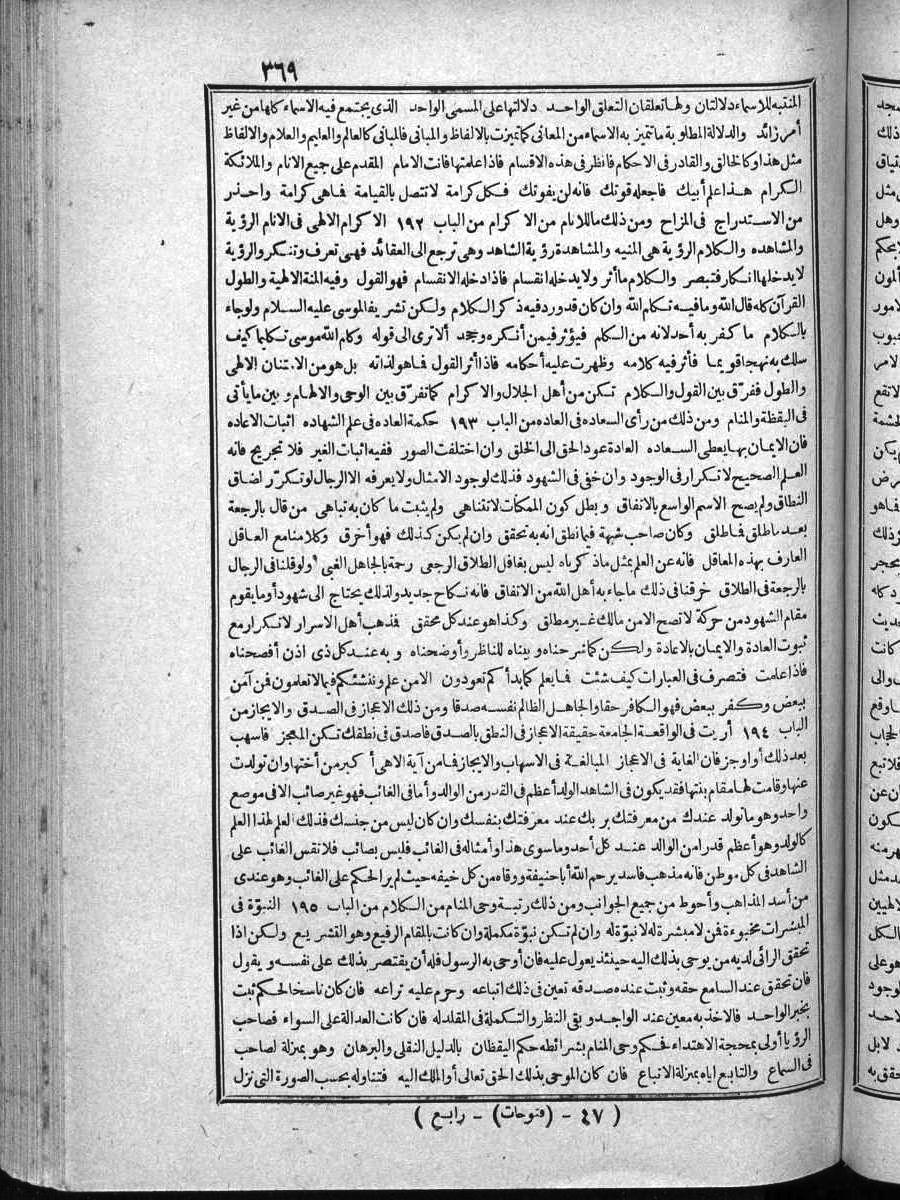 ٣٦٩
المنتبه للاسماء دلالتان ولها تعلقان التعلق الواحد دلالتها على المسمى الواحد الذى يجتمع فيه الاسماء كلها من غير
أمر زائد والدلالة المطلوبة ما تتميز به الاسماء من المعانى كما تميزت بالالفاظ والمبانى فالمبانى كالعالم والعليم والعلام والالفاظ
مثل هذا وكالخالق والقادر فى الاحكام فانظر فى هذه الاقسام فاذا علمتها فانت الامام المقدم على جميع الانام والملائكة
الكرام هذا علم أبيك فاجعله قوتك فانه لن يفوتك فكل كرامة لا تتصل بالقيامة فما هى كرامة واحذر
من الاستدراج فى المزاج ومن ذلك ما للانام من الاكرام من الباب ١٩٢ الاكرام الالهى فى الانام الرؤية
والمشاهده والكلام الرؤية هى المنيه والمشاهدة رؤية الشاهد وهى ترجع الى العقائد فهى تعرف وتنكر والرؤية
لا يدخلها انكار فتبصر والكلام ما أثر ولا يدخله انقسام فاذا دخله الانقسام فهو القول وفيه المنة الالهية والطول
القرآن كله قال الله وما فيه تكلم الله وان كان قد ورد فيه ذكر الكلام ولكن تشريفا لموسى عليه السلام ولو جاء
بالكلام ما كفر به أحد لانه من الكلم فيؤثر فيمن أنكره وجحد ألا ترى الى قوله وكلم الله موسى تكليما كيف
سلك به نهجا قويما فأثر فيه كلامه وظهرت عليه أحكامه فاذا أثر القول فما هو لذاته بل هو من الامتنان الالهى
والطول ففرّق بين القول والكلام تكن من أهل الجلال والاكرام كما تفرّق بين الوحى والالهام وبين ما يأتى
فى اليقظة والمنام ومن ذلك من رأى السعاده فى العاده من الباب ١٩٣ حكمة العاده فى علم الشهاده اثبات الاعاده
فان الايمان بها يعطى السعاده العادة عود الحق الى الخلق وان اختلفت الصور ففيه اثبات الغير فلا تجريح فانه
العلم الصحيح لا تكرار فى الوجود وان خفى فى الشهود فذلك لوجود الامثال ولا يعرفه الا الرجال لو تكرّر لضاق
النطاق ولم يصح الاسم الواسع بالاتفاق وبطل كون الممكنات لا تتناهى ولم يثبت ما كان به تباهى من قال بالرجعة
بعد ما طلق فما طلق وكان صاحب شبهة فيما نطق انه به تحقق وان لم يكن كذلك فهو أخرق وكلامنا مع العاقل
العارف بهذه المعاقل فانه عن العلم بمثل ما ذكرناه ليس بغافل الطلاق الرجعى رحمة بالجاهل الغبى ولو قلنا فى الرجال
بالرجعة فى الطلاق خرقنا فى ذلك ما جاء به أهل الله من الاتفاق فانه نكاح جديد ولذلك يحتاج الى شهود أو ما يقوم
مقام الشهود من حركة لا تصح الا من مالك غير مطلق وكذا هو عند كل محقق فمذهب أهل الاسرار لا تكرار مع
ثبوت العادة والايمان بالاعادة ولكن كما شرحناه وبيناه للناظر وأوضحناه وبه عند كل ذى اذن أفصحناه
فاذا علمت فتصرف فى العبارات كيف شئت فما يعلم كما بدأكم تعودون الا من علم وننشئكم فيما لا تعلمون فمن آمن
ببعض وكفر ببعض فهو الكافر حقا والجاهل الظالم نفسه صدقا ومن ذلك الاعجاز فى الصدق والايجاز من
الباب ١٩٤ أريت فى الواقعة الجامعة حقيقة الاعجاز فى النطق بالصدق فاصدق فى نطقك تكن المعجز فاسهب
بعد ذلك أو اوجز فان الغاية فى الاعجاز المبالغة فى الاسهاب والايجاز فما من آية الا هى أكبر من أختها وان تولدت
عنها وقامت لها مقام بنتها فقد يكون فى الشاهد الولد أعظم فى القدر من الوالد وأما فى الغائب فهو غير صائب الا فى موضع
واحد وهو ما تولد عندك من معرفتك بربك عند معرفتك بنفسك وان كان ليس من جنسك فذلك العلم لهذا العلم
كالولد وهو أعظم قدرا من الوالد عند كل أحد وما سوى هذا وأمثاله فى الغائب فليس بصائب فلا نقس الغائب على
الشاهد فى كل موطن فانه مذهب فاسد يرحم الله أبا حنيفة ووقاه من كل خيفه حيث لم ير الحكم على الغائب وهو عندى
من أسد المذاهب وأحوط من جميع الجوانب ومن ذلك رتبة وحى المنام من الكلام من الباب ١٩٥ النبوّة فى
المبشرات مخبوءة فمن لا مبشرة له لا نبوّة له وان لم تكن نبوّة مكملة وان كانت بالمقام الرفيع وهو التشريع ولكن اذا
تحقق الرائى لديه من يوحى بذلك اليه حينئذ يعول عليه فان أوحى به الرسول فله أن يقتصر بذلك على نفسه ويقول
فان تحقق عند السامع حقه وثبت عنده صدقه تعين فى ذلك اتباعه وحرم عليه نزاعه فان كان ناسخا لحكم ثبت
بخبر الواحد فالاخذ به معين عند الواجد وبقى النظر والتكملة فى المقلد له فان كانت العدالة على السواء فصاحب
الرؤيا أولى بمحجة الاهتداء فحكم وحى المنام بشرائطه حكم اليقظان بالدليل النقلى والبرهان وهو بمنزلة لصاحب
فى السماع والتابع اياه بمنزلة الاتباع فان كان الموحى بذلك الحق تعالى أو الملك اليه فتناوله بحسب الصورة التى نزل
( ٤٧ - (فتوحات) - رابع )